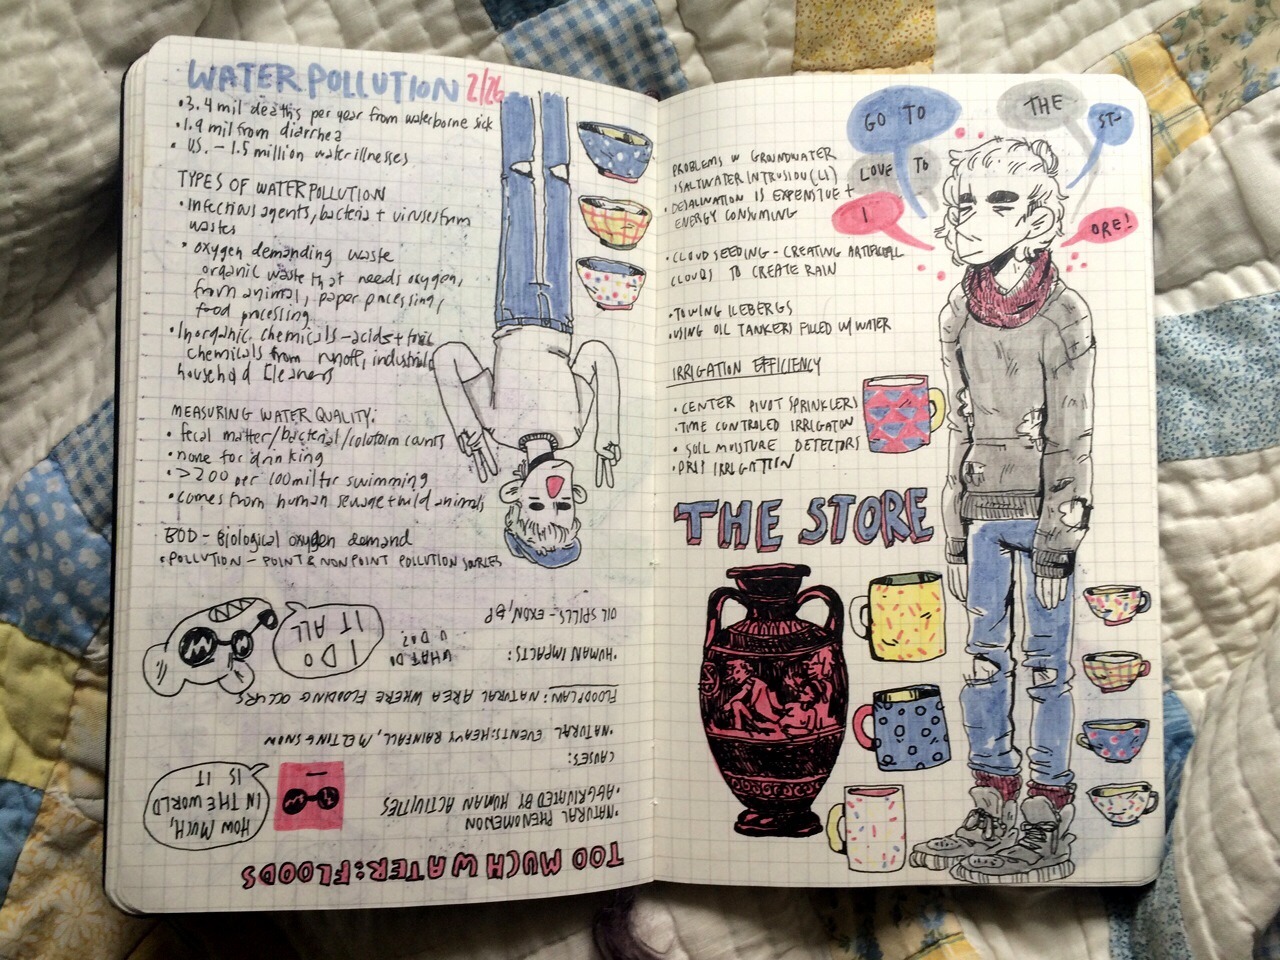 WATER POLLUTION 2/26
• 3.4 mil deaths per year from waterborne sick
• 1.9 mil from diarrhea
• U.S. - 1.5 million water illnesses
TYPES OF WATER POLLUTION
• Infectious agents, bacteria + viruses from
wastes
• oxygen demanding waste
organic waste that needs oxygen,
from animal, paper processing,
food processing
• Inorganic chemicals - acids + toxic
chemicals from runoff, industrial
household cleaners
MEASURING WATER QUALITY:
• fecal matter/bacterial/coloform counts
• none for drinking
• >200 per 100ml for swimming
• comes from human sewage + wild animals
BOD - Biological oxygen demand
• POLLUTION - POINT & NONPOINT POLLUTION SOURCES
TOO MUCH WATER: FLOODS
• NATURAL PHENOMENON
• AGGRIVATED BY HUMAN ACTIVITIES
HOW MUCH,
IN THE WORLD
IS IT
CAUSES:
• NATURAL EVENTS: HEAVY RAINFALL, MELTING SNOW
FLOODPLAIN: NATURAL AREA WHERE FLOODING OCCURS
• HUMAN IMPACTS:
WHAT DO
U DO?
I DO
IT ALL
OIL SPILLS - EXON, BP
PROBLEMS W GROUNDWATER
SALTWATER INTRUSION (LI)
• DESALINATION IS EXPENSIVE +
ENERGY CONSUMING
• CLOUD SEEDING - CREATING ARTIFICIAL
CLOUDS TO CREATE RAIN
• TOWING ICEBERGS
• USING OIL TANKERS FILLED W/ WATER
IRRIGATION EFFICIENCY
• CENTER PIVOT SPRINKLERS
• TIME CONTROLED IRRIGATON
• SOIL MOISTURE DETECTORS
• DRIP IRRIGATION
I
LOVE TO
GO TO
THE
ST-
ORE!
THE STORE